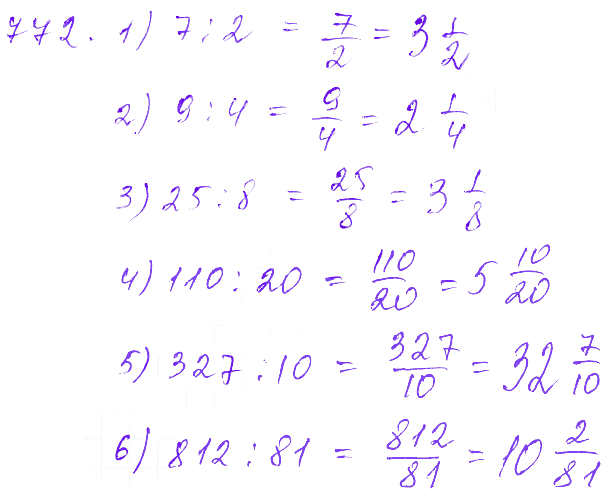 772. 1) 7 : 2 = 7/2 = 3 1/2
2) 9 : 4 = 9/4 = 2 1/4
3) 25 : 8 = 25/8 = 3 1/8
4) 110 : 20 = 110/20 = 5 10/20
5) 327 : 10 = 327/10 = 32 7/10
6) 812 : 81 = 812/81 = 10 2/81